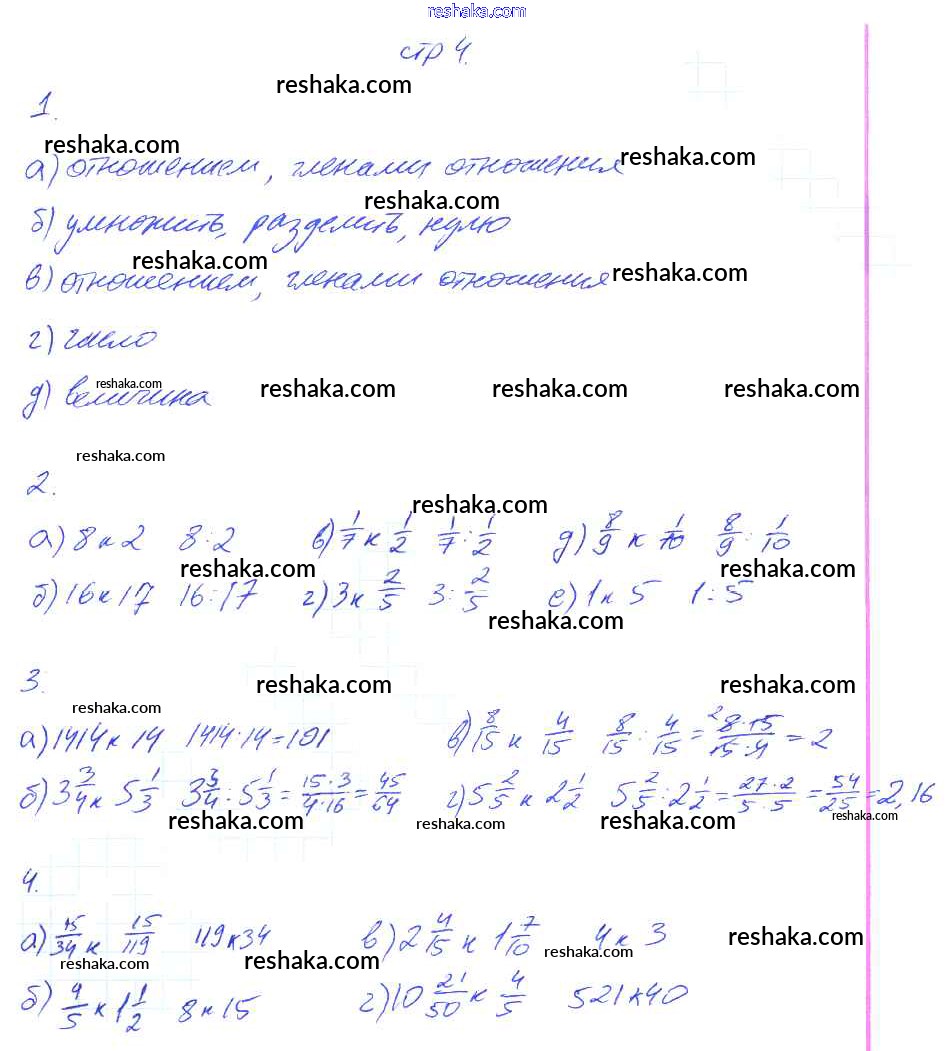 reshaka.com
стр 4.
reshaka.com
1.
reshaka.com
а) отношением, членами отношения reshaka.com
reshaka.com
б) умножить, разделить, нулю
reshaka.com
в) отношением, членами отношения reshaka.com
г) число
reshaka.com reshaka.com reshaka.com reshaka.com
д) величина
reshaka.com
2.
reshaka.com
а) 8 к 2 8:2 в) 1/7 к 1/2 1/7 : 1/2 д) 8/9 к 1/10 8/9 : 1/10
reshaka.com reshaka.com
б) 16 к 17 16:17 г) 3 к 2/5 3 : 2/5 е) 1 к 5 1:5
reshaka.com
3.
reshaka.com reshaka.com
reshaka.com
а) 1414 к 14 1414:14=101 в) 8/15 к 4/15 8/15 : 4/15 = 8·15/15·4 = 2
б) 3 3/4 к 5 1/3 3 3/4 : 5 1/3 = 15·3/4·16 = 45/64 г) 5 2/5 к 2 1/2 5 2/5 : 2 1/2 = 27·2/5·5 = 54/25 = 2,16
reshaka.com reshaka.com reshaka.com reshaka.com
4.
а) 15/34 к 15/119 119 к 34 в) 2 4/15 к 1 7/10 4 к 3 reshaka.com
reshaka.com reshaka.com reshaka.com
б) 4/5 к 1 1/2 8 к 15 г) 10 21/50 к 4/5 521 к 40